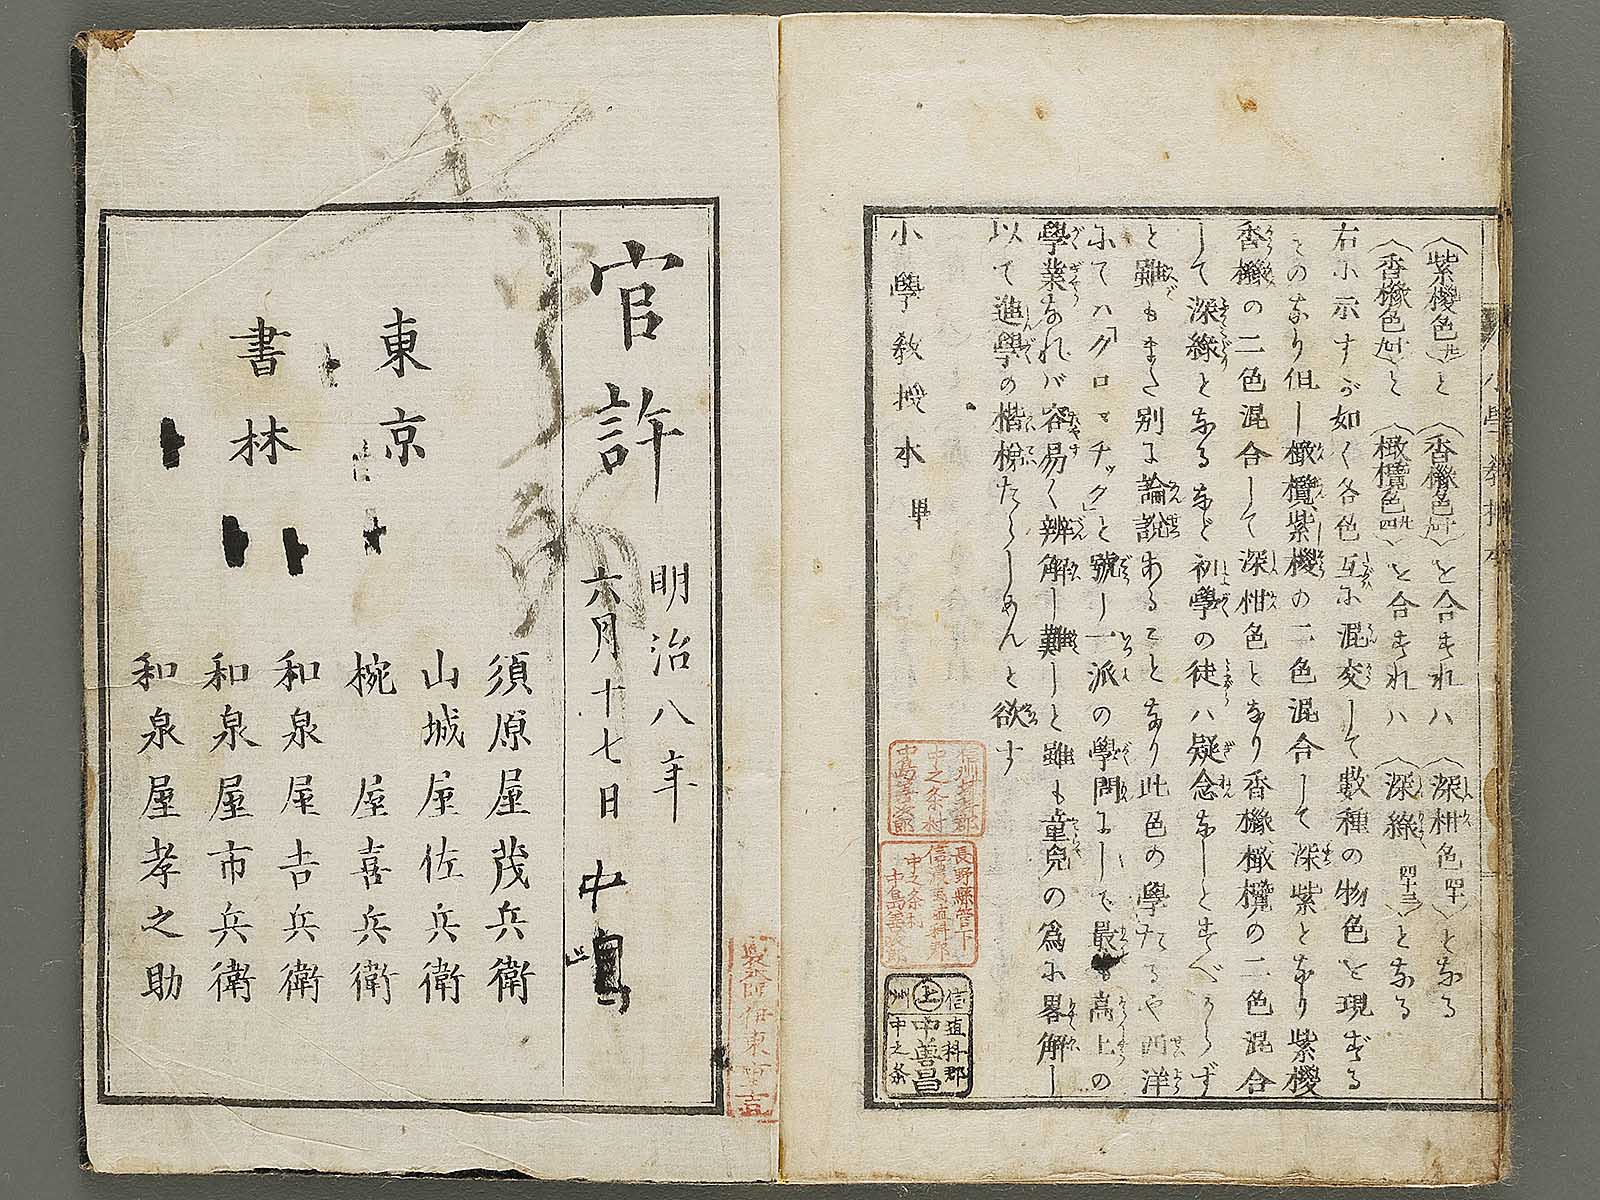 紫椶色と香櫞色を合すればハ深柑色となる
香櫞色と橄欖色を合すれハ深綠となる
右に示すが如く各色互に混交して數種の物色を現ずる
ものなり但し橄欖紫椶の二色混合して深紫となり紫椶
香櫞の二色混合して深柑色となり香櫞橄欖の二色混合
して深綠となるなど初學の徒ハ疑念なしとすべからず
と雖もまた別に論說あることなり此色の學タるや西洋
にてハ「クロマチック」と號し一派の學問にして最も高上の
學業なれバ容易く辨解し難しと雖も童兒の爲に畧解し
以て進學の楷梯たらしめんと欲す
小學敎授本 畢
小學敎授本
長野縣管下
中之条村
信州
上
埴科郡
中之条
官許
明治八年
六月十七日
中島
東京
書林
須原屋茂兵衛
山城屋佐兵衛
椀屋喜兵衛
和泉屋吉兵衛
和泉屋市兵衛
和泉屋孝之助